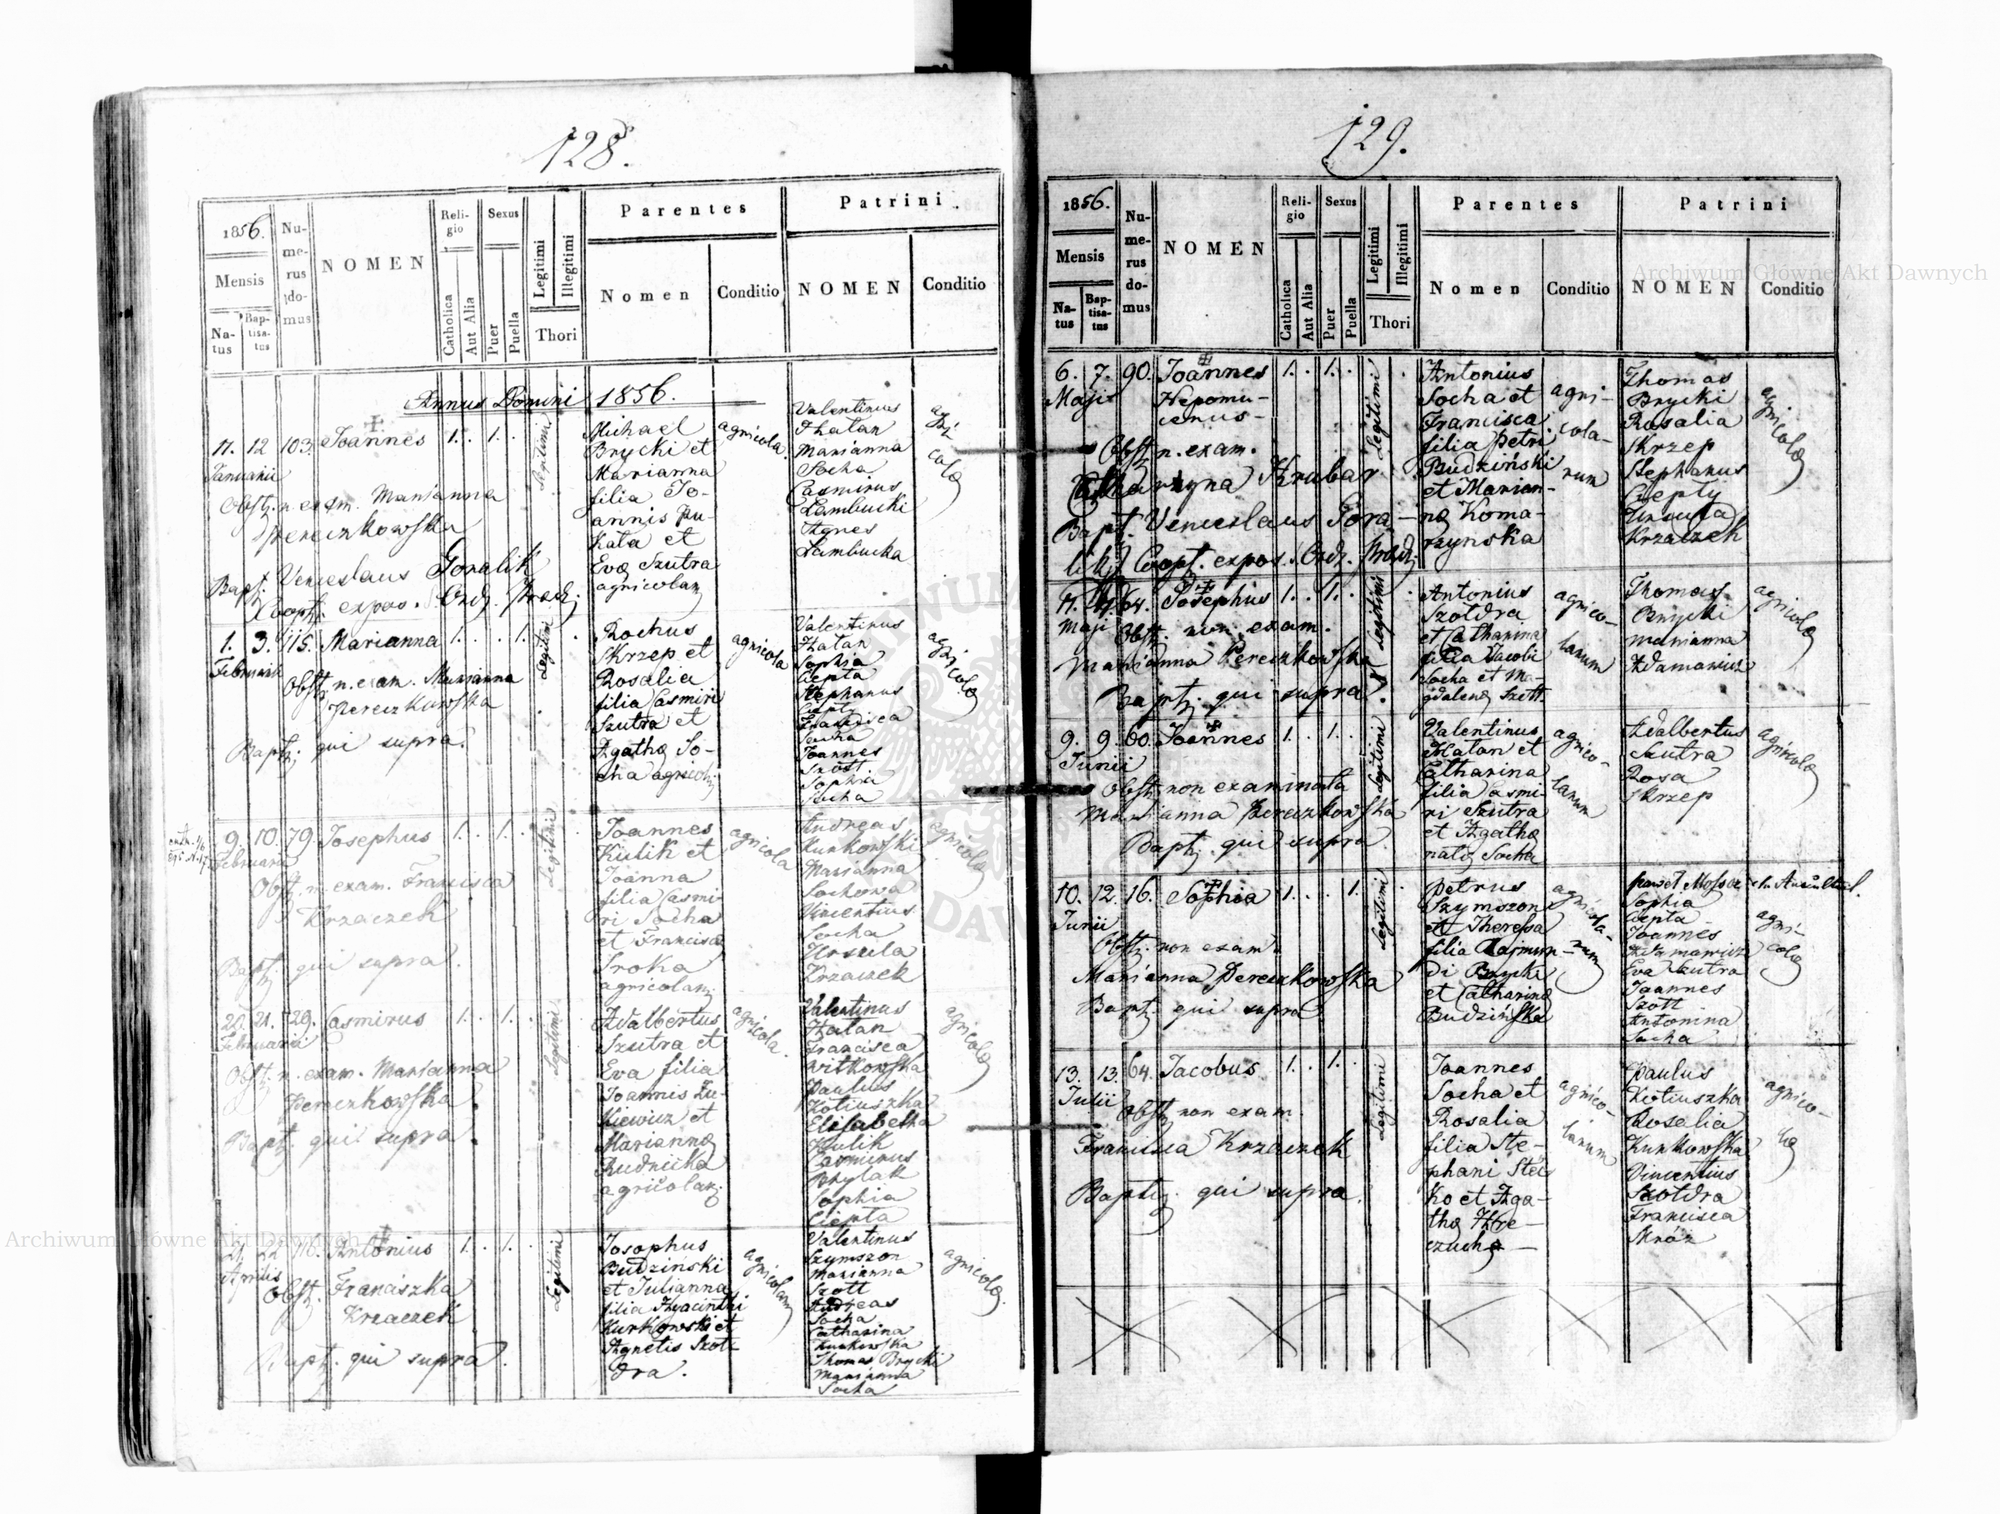 128.
1856.
Mensis
Na-
tus
Bap-
tisa-
tus
Nu-
me-
rus
do-
mus
NOMEN
Reli-
gio
Catholica
Aut Alia
Sexus
Puer
Puella
Legitimi
Illegitimi
Thori
Parentes
Nomen
Conditio
Patrini
NOMEN
Conditio
Annus Domini 1856.
11. 12 103. Joannes 1. 1.
Januarii
Obst. n. exam. Marianna
Pereczkowska
Bapt. Venceslaus Goralik
Coopt. expos.
Legitimi
Michael
Brycki et
Marianna
filia Jo-
annis Pu-
kata et
Eva Szutra
agricolarum
agricola.
Valentinus
Hatan
Marianna
Socha
Casmirus
Lambucki
Agnes
Lambucka
agri
colæ
1. 3. 115. Marianna 1. 1.
Februarii
Obst. n. exam. Marianna
Pereczkowska
Bapt. qui supra.
Legitimi
Rochus
Skrzep et
Rosalia
filia Casmiri
Szutra et
Agathæ So-
cha agricol.
agricola
Valentinus
Hatan
Sophia
Ciepta
Stephanus
Ciepty
Francisca
Socha
Joannes
Szott
Sophia
Socha
agricolæ
9. 10. 79. Josephus 1. 1.
Februarii
Obst. n. exam. Francisca
Krzaczek
Bapt. qui supra.
Legitimi
Joannes
Kulik et
Joanna
filia Casmi-
ri Socha
et Francisca
Sroka
agricolarum
agricola
Andreas
Kurkowski
Marianna
Sochowa
Vincentius
Socha
Ursula
Krzaczek
agricolæ
20. 21. 129. Casmirus 1. 1.
Februarii
Obst. n. exam. Marianna
Pereczkowska
Bapt. qui supra.
Legitimi
Adalbertus
Szutra et
Eva filia
Joannis Zu-
kiewicz et
Mariannæ
Rudnicka
agricolarum
agricola.
Valentinus
Hatan
Francisca
Witkowska
Paulus
Kotiuszka
Elisabetha
Kulik
Casmirus
Brylak
Sophia
Ciepta
agricolæ
21. 22 116. Antonius 1. 1.
Aprilis
Obst. Franciszka
Krzaczek
Bapt. qui supra.
Legitimi
Josephus
Budziński
et Julianna
filia Hyacinthi
Kurkowski et
Agnetis Szot
dra.
agricolarum
Valentinus
Szymszon
Marianna
Szott
Andreas
Socha
Catharina
Kurkowska
Thomas Brycki
Marianna
Socha
agricolæ.
129.
1856.
Mensis
Na-
tus
Bap-
tisa-
tus
Nu-
me-
rus
do-
mus
NOMEN
Reli-
gio
Catholica
Aut Alia
Sexus
Puer
Puella
Legitimi
Illegitimi
Thori
Parentes
Nomen
Conditio
Patrini
NOMEN
Conditio
6. 7. 90. Joannes 1. 1.
Maji Nepomu-
cenus-
Obst. n. exam.
Katharzyna Hrabar
Bapt. Venceslaus Gora-
lik Coopt. expos.
Legitimi
Antonius
Socha et
Francisca
filia Petri
Budziński
et Marian-
næ Koma-
rzynska
agri-
cola-
rum
Thomas
Brycki
Rosalia
Skrzep
Stephanus
Ciepty
Ursula
Krzaczek
agricolæ
Josephus 1. 1.
Maji
Obst. non. exam.
Marianna Pereczkowska
Bapt. qui supra
Legitimi
Antonius
Szotdra
et Catharina
filia Jacobi
Socha et Ma-
gdalenæ Szott
agrico-
larum
Thomas
Brycki
Marianna
Adamowicz
agricolæ
9. 9. 60. Joannes 1. 1.
Junii
Obst. non examinata
Marianna Pereczkowska
Bapt. qui supra.
Legitimi
Valentinus
Hatan et
Catharina
filia Casmi-
ri Szutra
et Agathæ
natæ Socha
agrico-
larum
Adalbertus
Szutra
Rosa
Skrzep
agricolæ
10. 12. 16. Sophia 1. 1.
Junii
Obst. non exam.
Marianna Pereczkowska
Bapt. qui supra
Legitimi
Petrus
Szymszon
et Theresa
filia Rajmun-
di Brycki
et Catharinæ
Budzińska
agricola-
rum
Sophia
Ciepta
Joannes
Adamowicz
Eva Szutra
Joannes
Szott
Antonina
Socha
agri-
colæ
13. 13. 64. Jacobus 1. 1.
Julii
Obst. non exam.
Francisca Krzaczek
Bapt. qui supra.
Legitimi
Joannes
Socha et
Rosalia
filia Ste-
phani Stec
ko et Aga-
thæ Hre-
czucha
agrico-
larum
Paulus
Kotiuszka
Rosalia
Kurkowska
Vincentius
Szotdra
Francisca
Mróz
agrico-
læ
Archiwum Główne Akt Dawnych
Archiwum Główne Akt Dawnych